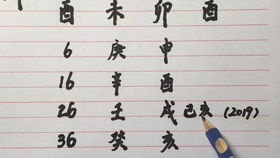 酉 未 卯 酉
6 庚 申
16 辛 酉
26 壬 戌 己亥 (2019)
36 癸 亥